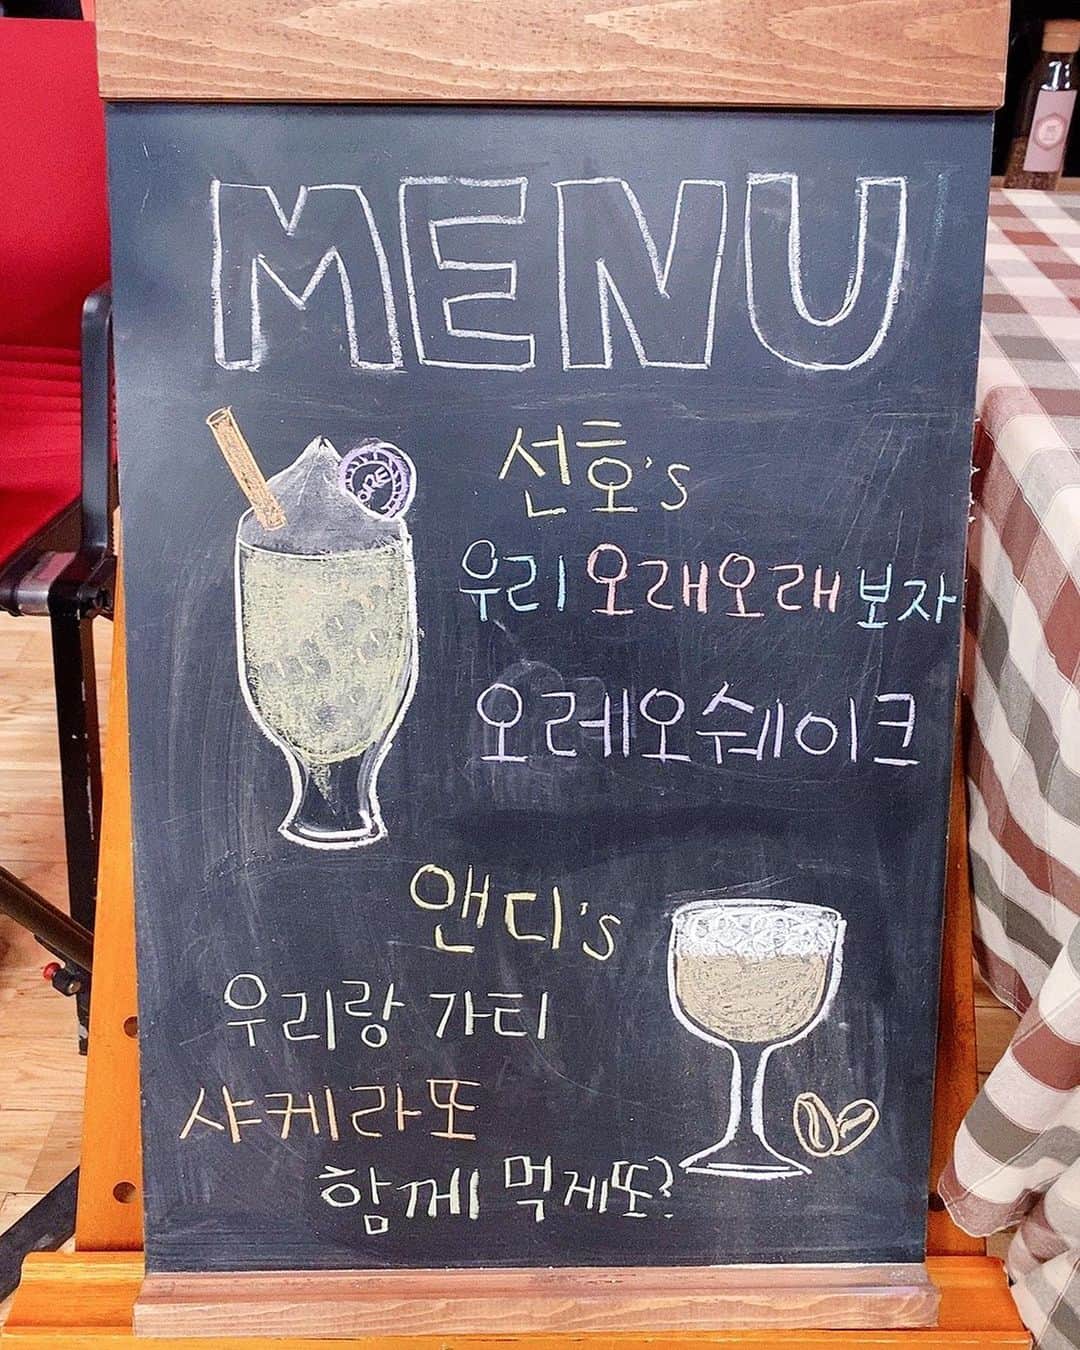 MENU
ORE
선호's
우리 오래오래 보자
오레오쉐이크
앤디's
우리랑 가티
샤케라또
함께 먹게또?